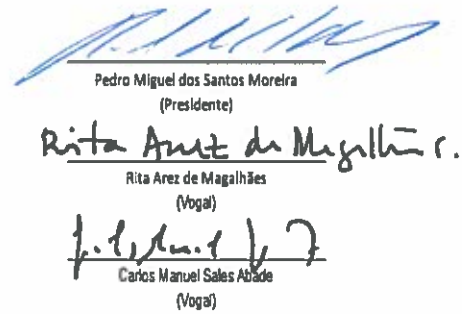 Pedro Miguel dos Santos Moreira
(Presidente)
Rita Arez de Magalhães
Rita Arez de Magalhães
(Vogal)
Carlos Manuel Sales Abade
(Vogal)